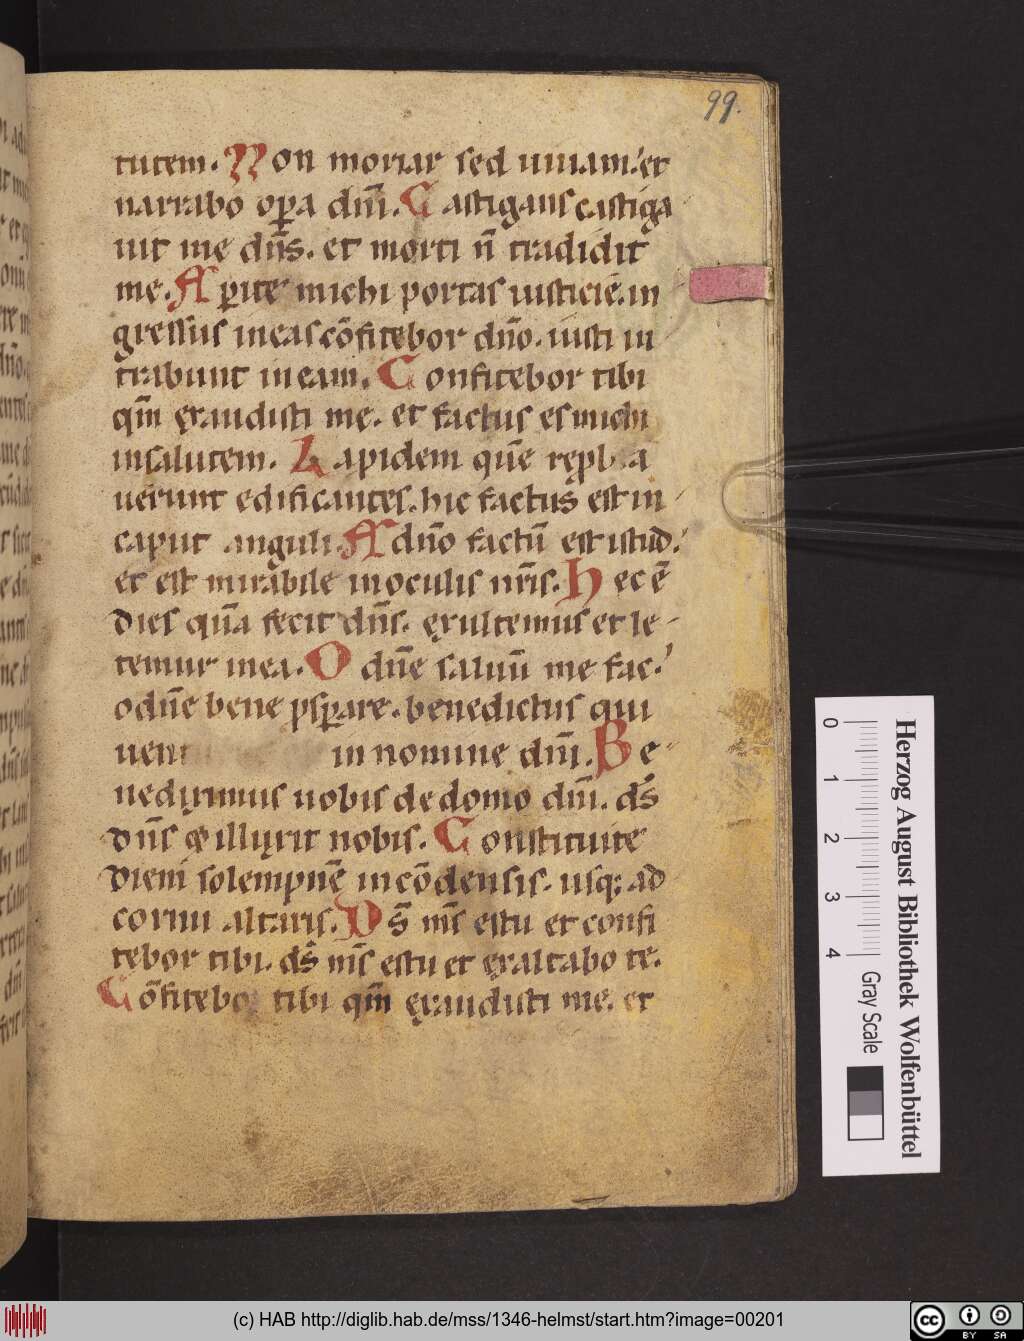 99.
tutem. Non moriar sed uiuam. et
narrabo opa dni. Castigans castiga
uit me dns. et morti n tradidit
me. Apite michi portas iusticie. in
gressus in eas cofitebor dno. iusti in
trabunt in eam. Confitebor tibi
qm exaudisti me. et factus es michi
in salutem. Lapidem que
uerunt edificantes. hic factus est in
caput anguli. A dno factu est istud.
et est mirabile in oculis nris. Hec e
dies qua fecit dns. exultemus et le
temur in ea. O dne saluu me fac.
o dne bene psperare. benedictus qui
in nomine dni. Be
nediximus uobis de domo dni. ds
dns & illuxit nobis. Constituite
diem solempne in codensis. usq; ad
cornu altaris. Ds ms es tu et confi
tebor tibi. ds ms es tu et exaltabo te.
Cofitebor tibi qm exaudisti me. et
0 1 2 3 4
Gray Scale
Herzog August Bibliothek Wolfenbüttel
(c) HAB http://diglib.hab.de/mss/1346-helmst/start.htm?image=00201
cc BY SA